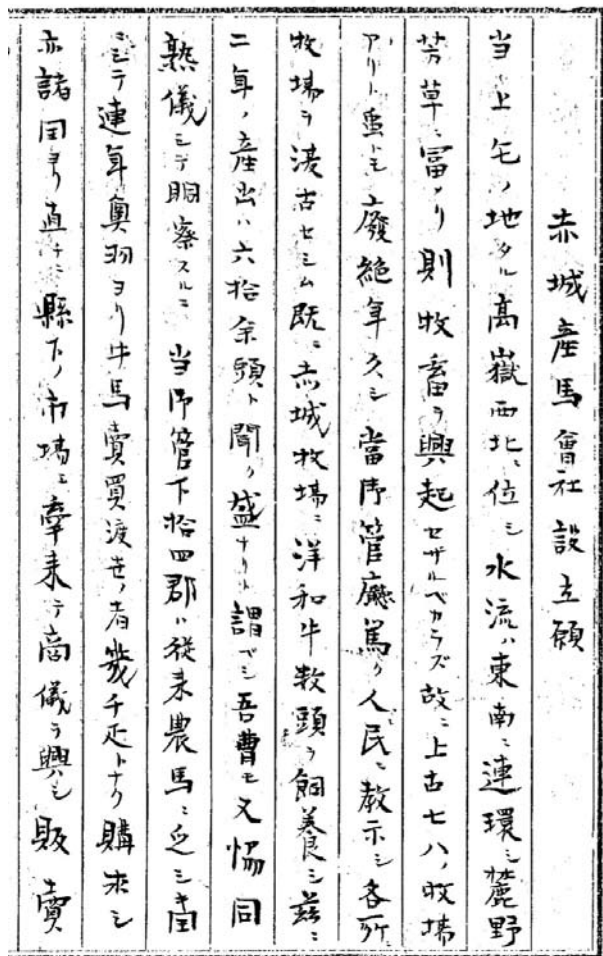 赤城産馬會社設立願
当上毛ノ地タル高嶽西北ニ位シ水流ハ東南ニ連環シ麓野
芳草ニ冨メリ則牧畜ヲ興起セザルベカラズ故ニ上古七八ノ牧場
アリト虽トモ廢絶年久シ當御管廳篤ク人民ニ教示シ各所ニ
牧場ヲ復古セシム既ニ赤城牧場ニ洋和牛数頭ヲ飼養シ茲ニ
二年ノ産出ハ六拾余頭ト聞ク盛ナリト謂ベシ吾曹モ又恊同
熟儀シテ洞察スルニ当御管下拾四郡ハ従来農馬ニ乏シ
ニシテ連年奥羽ヨリ牛馬賣買渡世ノ者幾千疋トナク購求シ
亦諸国ヨリ直チニ縣下ノ市場ニ牽来テ商儀ヲ興シ販賣